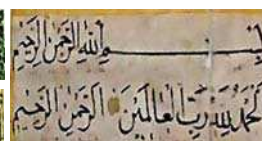 بسم الله الرحمن الرحيم
الحمد لله رب العالمين الرحمن الرحيم